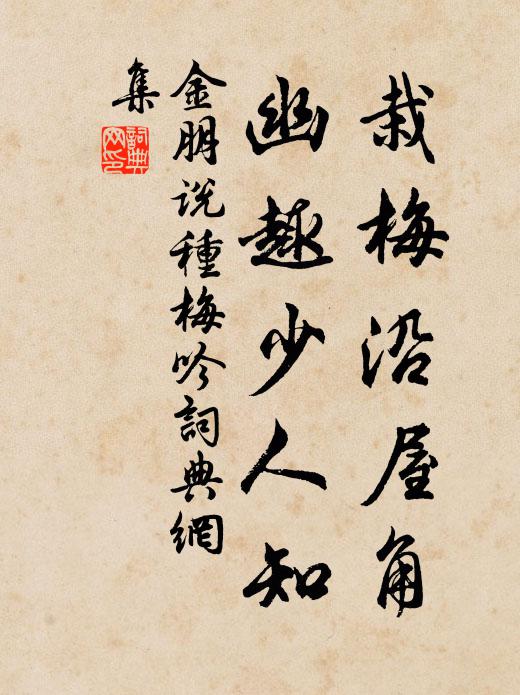 栽梅沿屋角
幽趣少人知
金朋说種梅吟詞典網
集
詞典网印